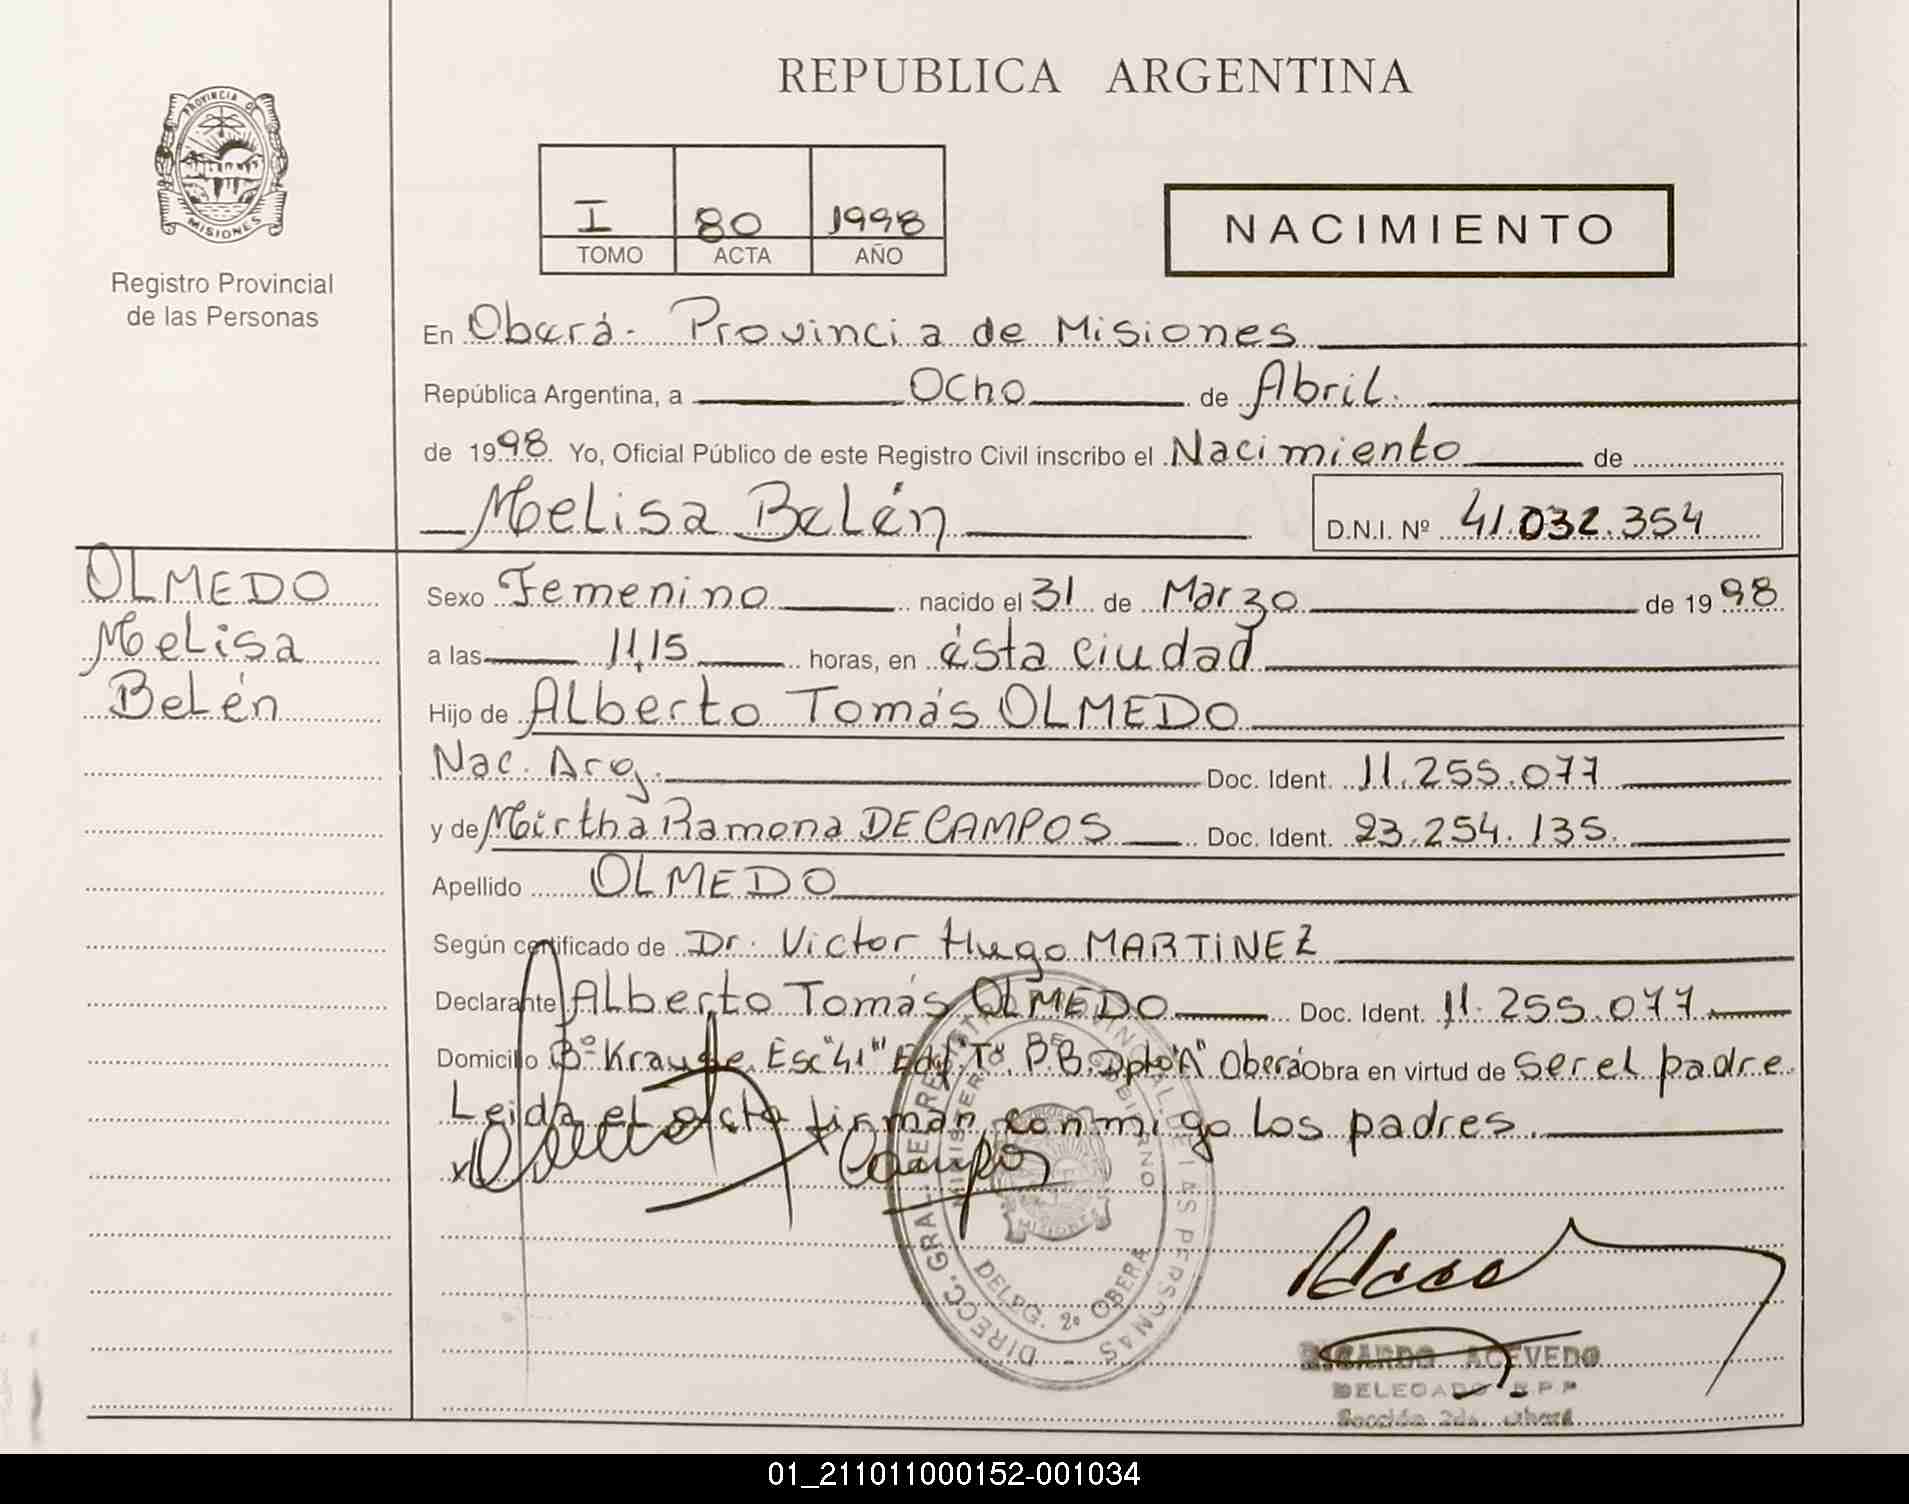 PROVINCIA DE
MISIONES
Registro Provincial
de las Personas
REPUBLICA ARGENTINA
I 80 1998
TOMO ACTA AÑO
NACIMIENTO
En Oberá- Provincia de Misiones
República Argentina, a Ocho de Abril.
de 1998. Yo, Oficial Público de este Registro Civil inscribo el Nacimiento de
Melisa Belén D.N.I. Nº 41.032.354
OLMEDO
Melisa
Belén
Sexo Femenino nacido el 31 de Marzo de 1998
a las 11,15 horas, en ésta ciudad
Hijo de Alberto Tomás OLMEDO
Nac. Arg. Doc. Ident. 11.255.077
y de Mirtha Ramona DE CAMPOS Doc. Ident. 23.254.135.
Apellido OLMEDO
Según certificado de Dr. Victor Hugo MARTINEZ
Declarante Alberto Tomás OLMEDO Doc. Ident. 11.255.077
Domicilio Bº Krause Esc "41" Edf. P.B. Dpto "A" Oberá Obra en virtud de ser el padre
Leida el acta firman conmigo los padres.
Campos
DIRECC. GRAL. DE REGISTRO PROVINCIAL DE LAS PERSONAS
MINISTERIO DE GOBIERNO
MISIONES
DELEG. 2º OBERÁ
RICARDO ACEVEDO
DELEGADO R.P.P.
Sección 2da. Oberá
01_211011000152-001034